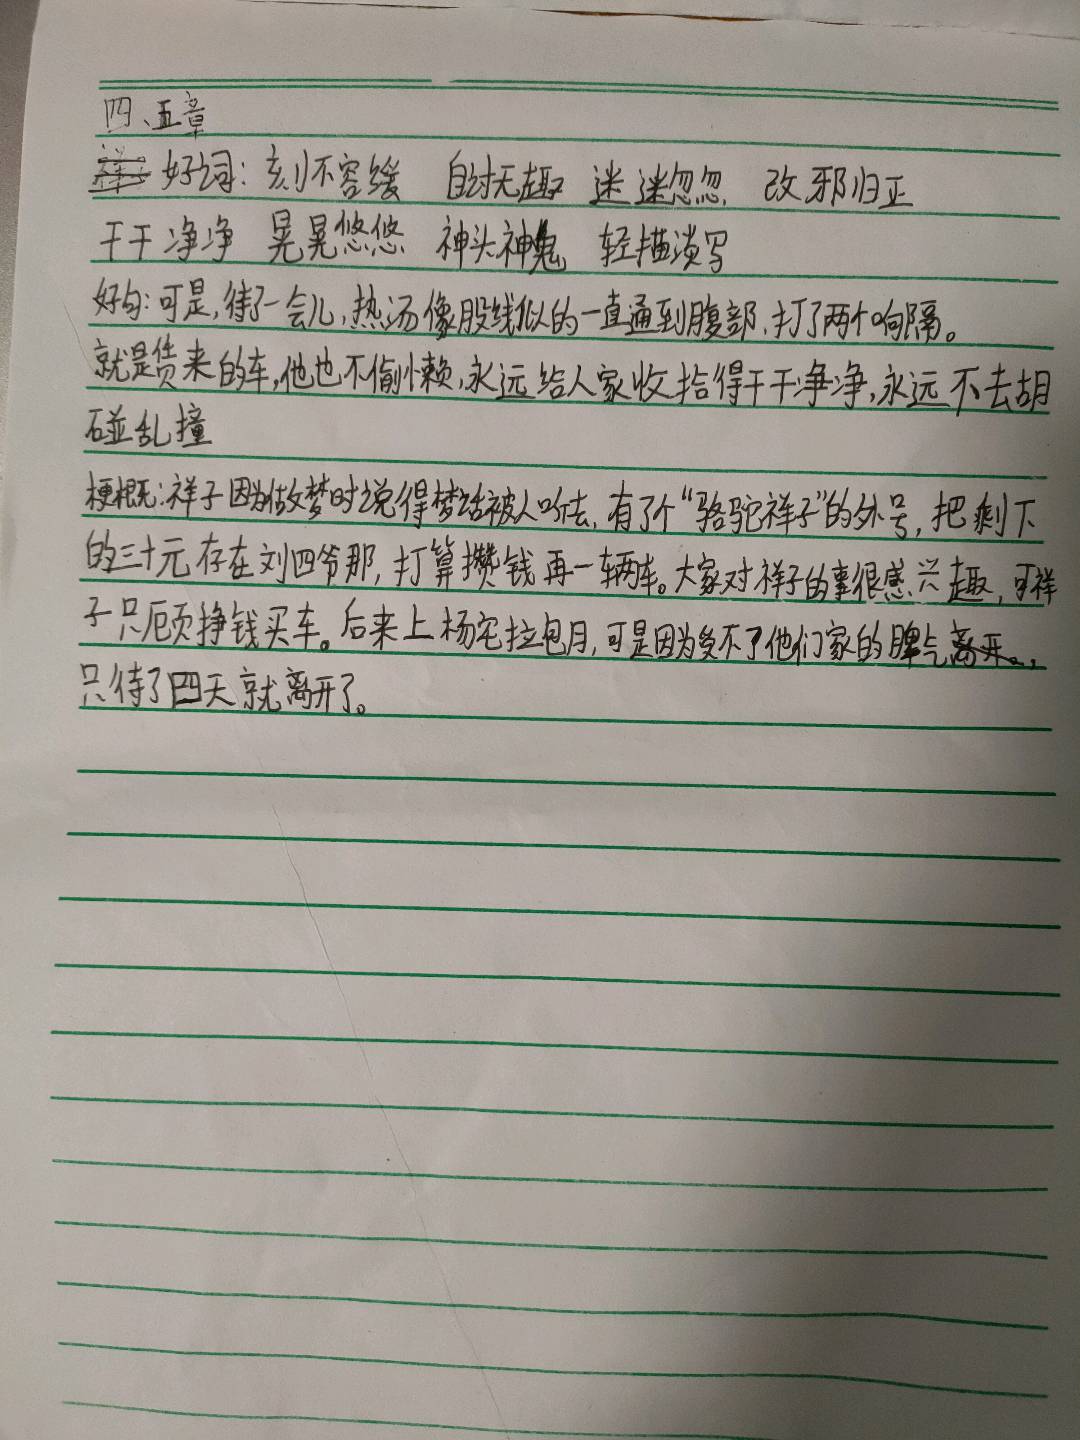 四、五章
好词：刻不容缓 自讨无趣 迷迷忽忽 改邪归正
干干净净 晃晃悠悠 神头神鬼 轻描淡写
好句：可是，待了一会儿，热汤像股线似的一直通到腹部，打了两个响隔。
就是赁来的车，他也不偷懒，永远给人家收拾得干干净净，永远不去胡
碰乱撞
梗概：祥子因为做梦时说得梦话被人听去，有了个“骆驼祥子”的外号，把剩下
的三十元存在刘四爷那，打算攒钱再一辆车。大家对祥子的事很感兴趣，可祥
子只顾挣钱买车。后来上杨宅拉包月，可是因为受不了他们家的脾气离开。，
只待了四天就离开了。